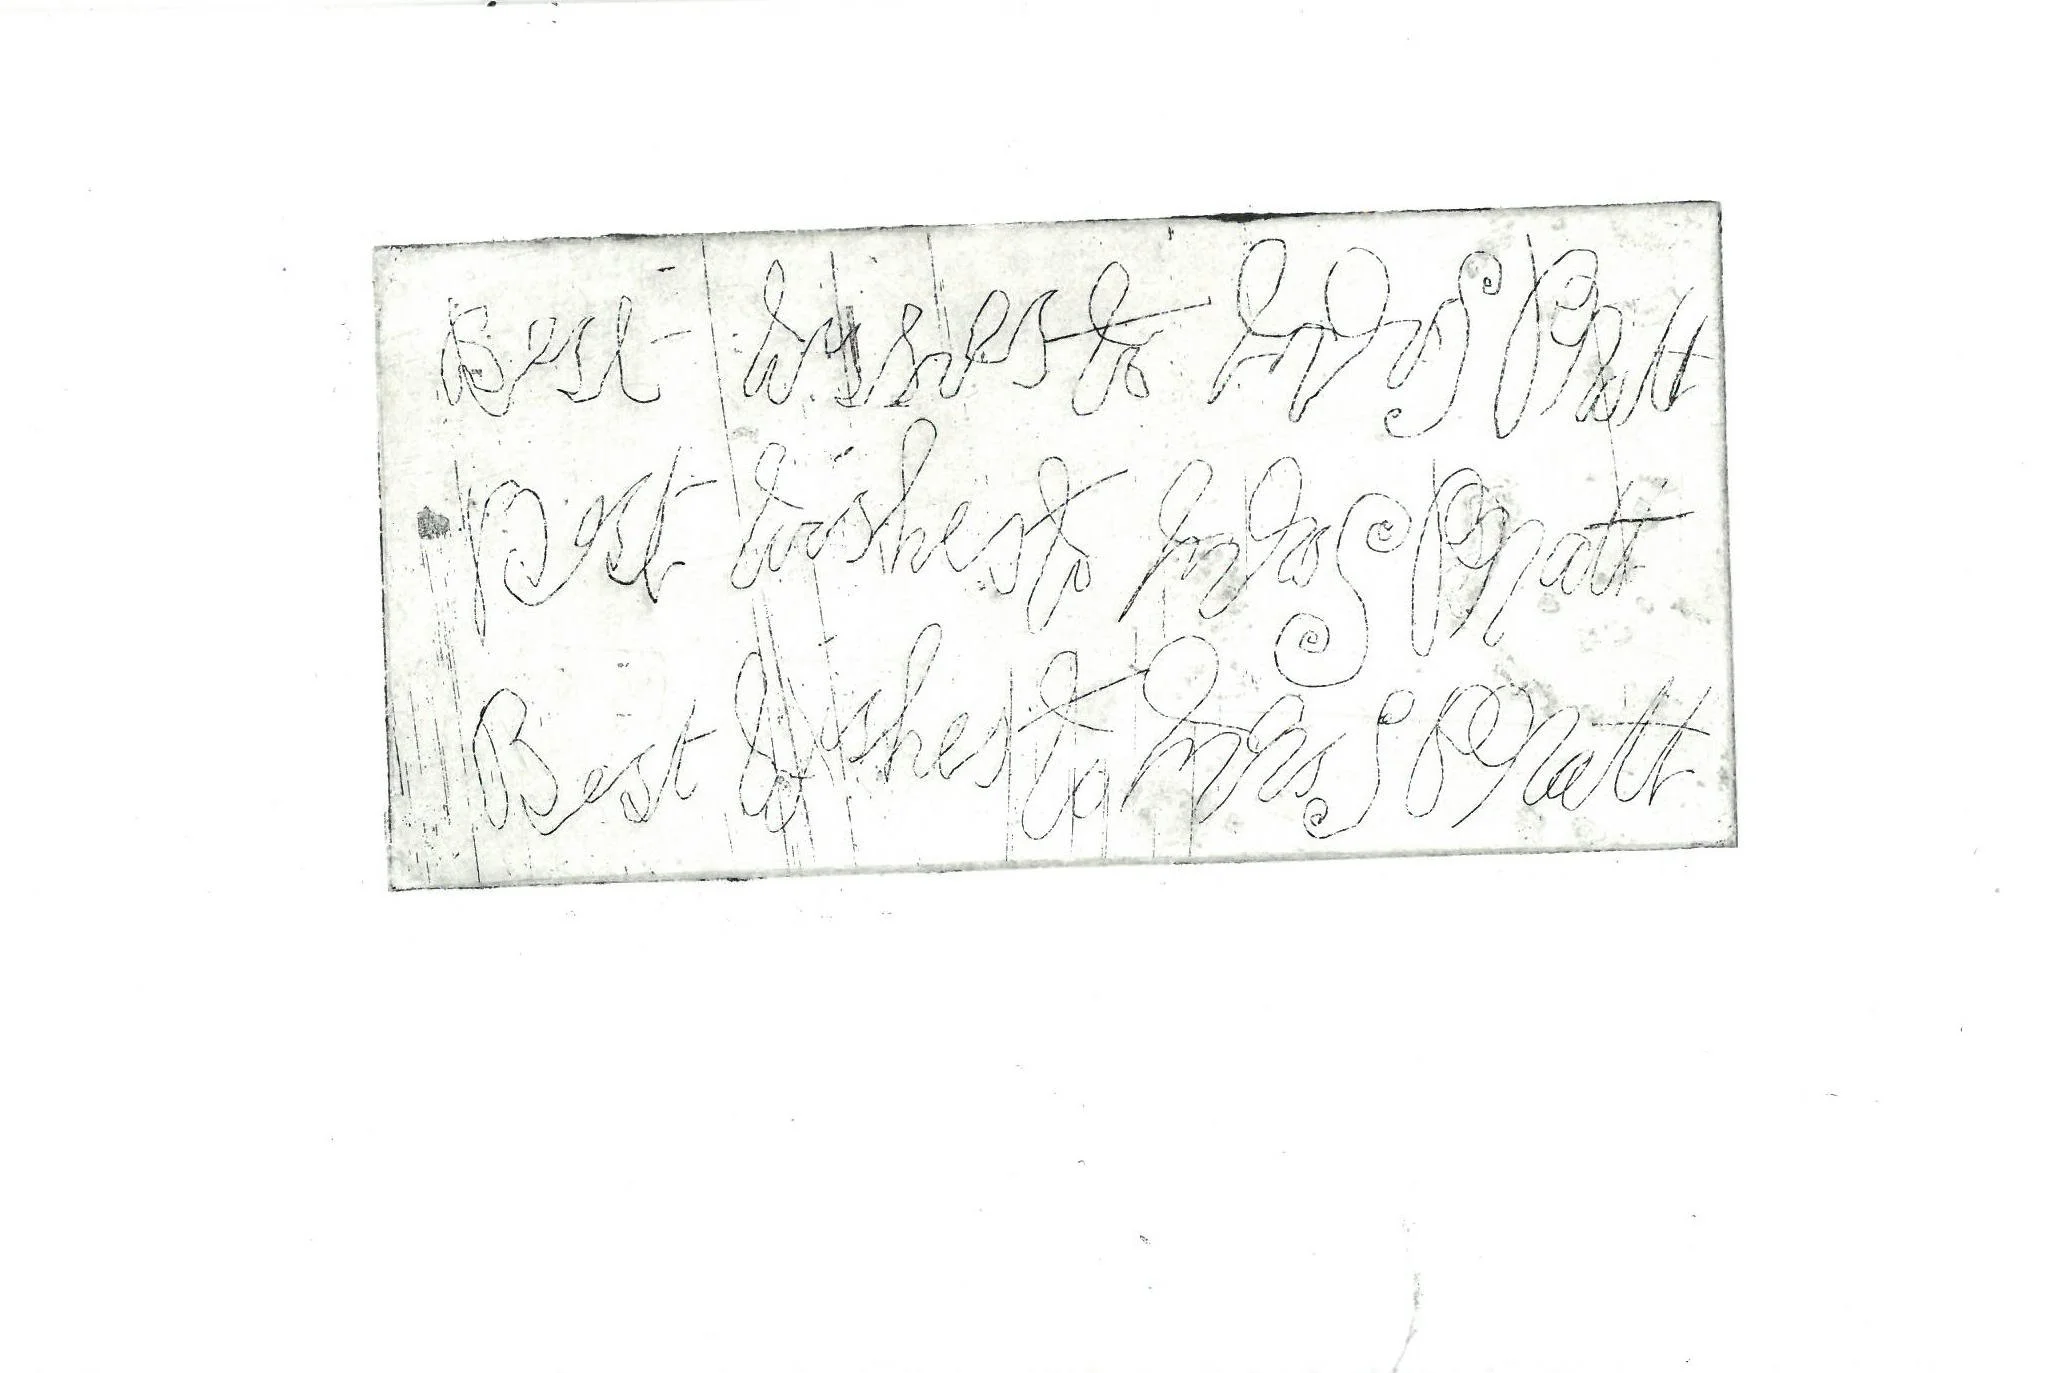 Best Wishes to Mrs S Pratt
Best Wishes to Mrs S Pratt
Best Wishes to Mrs S Pratt